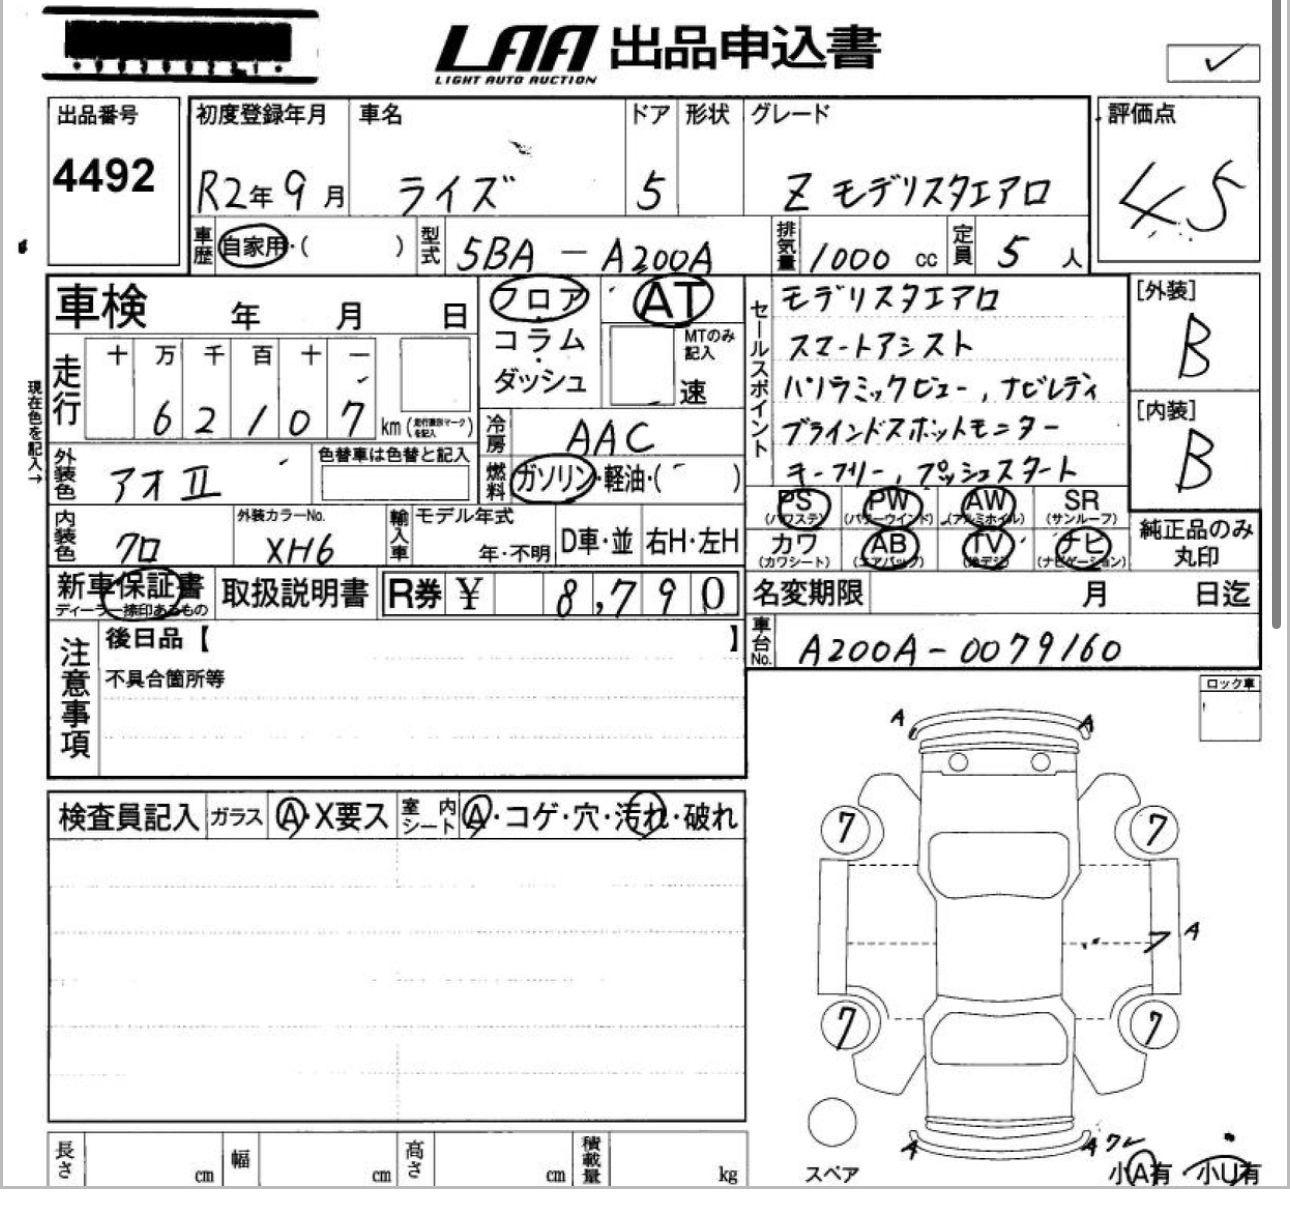 LAA 出品申込書
LIGHT AUTO AUCTION
出品番号
4492
初度登録年月
R2年9月
車名
ライズ
ドア
5
形状
グレード
Z モデリスタエアロ
評価点
4.5
車歴
自家用・( )
型式
5BA - A200A
排気量
1000 cc
定員
5 人
車検 年 月 日
フロア
コラム
・
ダッシュ
AT
MTのみ記入
速
セールスポイント
モデリスタエアロ
スマートアシスト
パノラミックビュー, ナビレディ
ブラインドスポットモニター
キーフリー, プッシュスタート
[外装]
B
[内装]
B
現在色を記入→
走行
十 万 千 百 十 一
6 2 1 0 7 km
冷房
AAC
外装色
アオⅡ
色替車は色替と記入
燃料
ガソリン・軽油・( )
内装色
クロ
外装カラーNo.
XH6
輸入車
モデル年式
年・不明
D車・並
右H・左H
PS
(パワステ)
PW
(パワーウインド)
AW
(アルミホイル)
SR
(サンルーフ)
カワ
(カワシート)
AB
(エアバッグ)
TV
(地デジ)
ナビ
(ナビゲーション)
純正品のみ
丸印
新車保証書
ディーラー捺印あるもの
取扱説明書
R券 ¥ 8,790
名変期限 月 日迄
注意事項
後日品【 】
不具合箇所等
車台No.
A200A-0079160
ロック車
検査員記入
ガラス
A・X要ス
室内シート
A・コゲ・穴・汚れ・破れ
A
A
7
7
A
7
7
A
A
スペア
小A有
小U有
長さ cm
幅 cm
高さ cm
積載量 kg